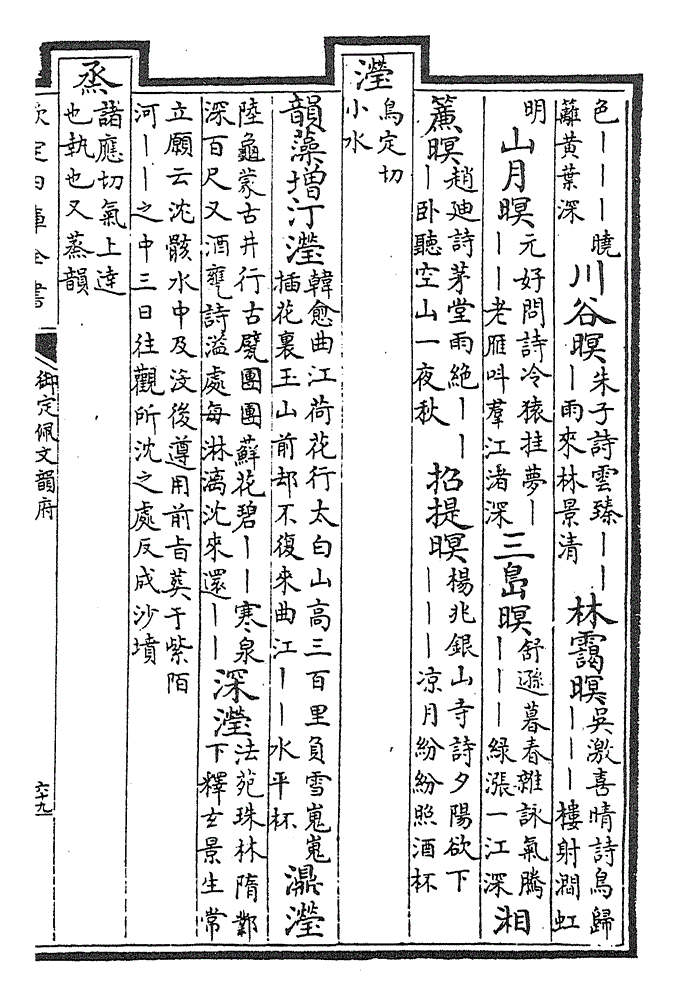 色丨丨丨曉蘺黄葉深川谷暝朱子詩雲臻丨丨丨雨來林景清林靄暝吳激喜晴詩鳥歸丨丨丨樓射澗虹
明山月暝元好問詩冷猿挂夢丨丨丨老雁呌羣江渚深三島暝舒遜暮春雜詠氣騰丨丨丨緑漲一江深湘
簾暝趙廸詩茅堂雨絶丨丨丨卧聽空山一夜秋招提暝楊兆銀山寺詩夕陽欲下丨丨丨凉月紛紛照酒杯
瀅烏定切小水
韻藻增汀瀅韓愈曲江荷花行太白山高三百里負雪嵬嵬插花裏玉山前却不復來曲江丨丨水平杯濎瀅
陸龜蒙古井行古甃團團蘚花碧丨丨寒泉深百尺又酒甕詩溢處每淋漓沈來還丨丨深瀅法苑珠林隋鄴下釋玄景生常
立願云沈骸水中及没後遵用前㫖葬于紫陌河丨丨之中三日往觀所沈之處反成沙墳
烝諸應切氣上達也執也又蒸韻
欽定四庫全書 御定佩文韻府 六十九